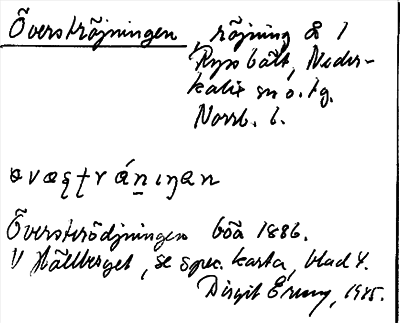 Överströjningen, röjning å 1
Rysbält, Neder-
kalix sn o. tg.
Norrb. l.
Överströdjningen böa 1886.
V Hällberget, se spec. karta, blad 4.
Birgit Eruny, 1985.